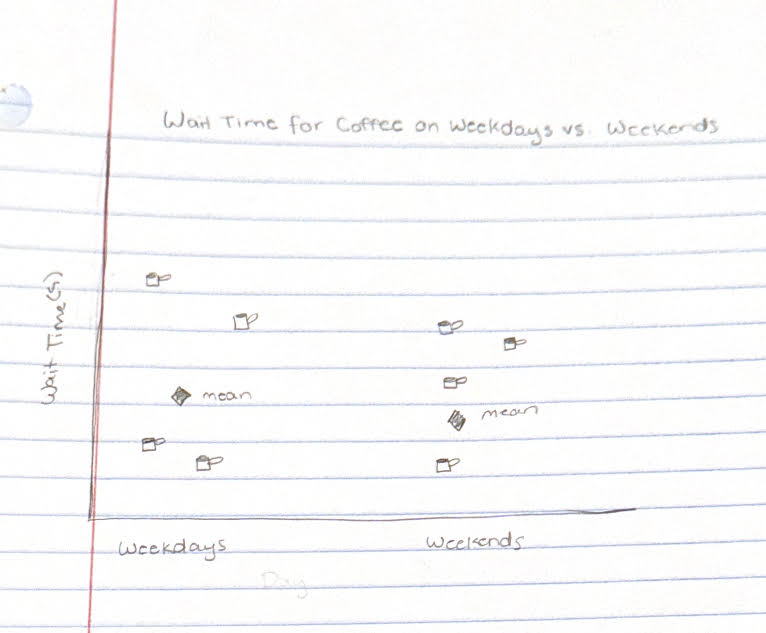 Wait Time for Coffee on Weekdays vs. Weekends
Wait Time (s)
mean
mean
Weekdays
Weekends
Day